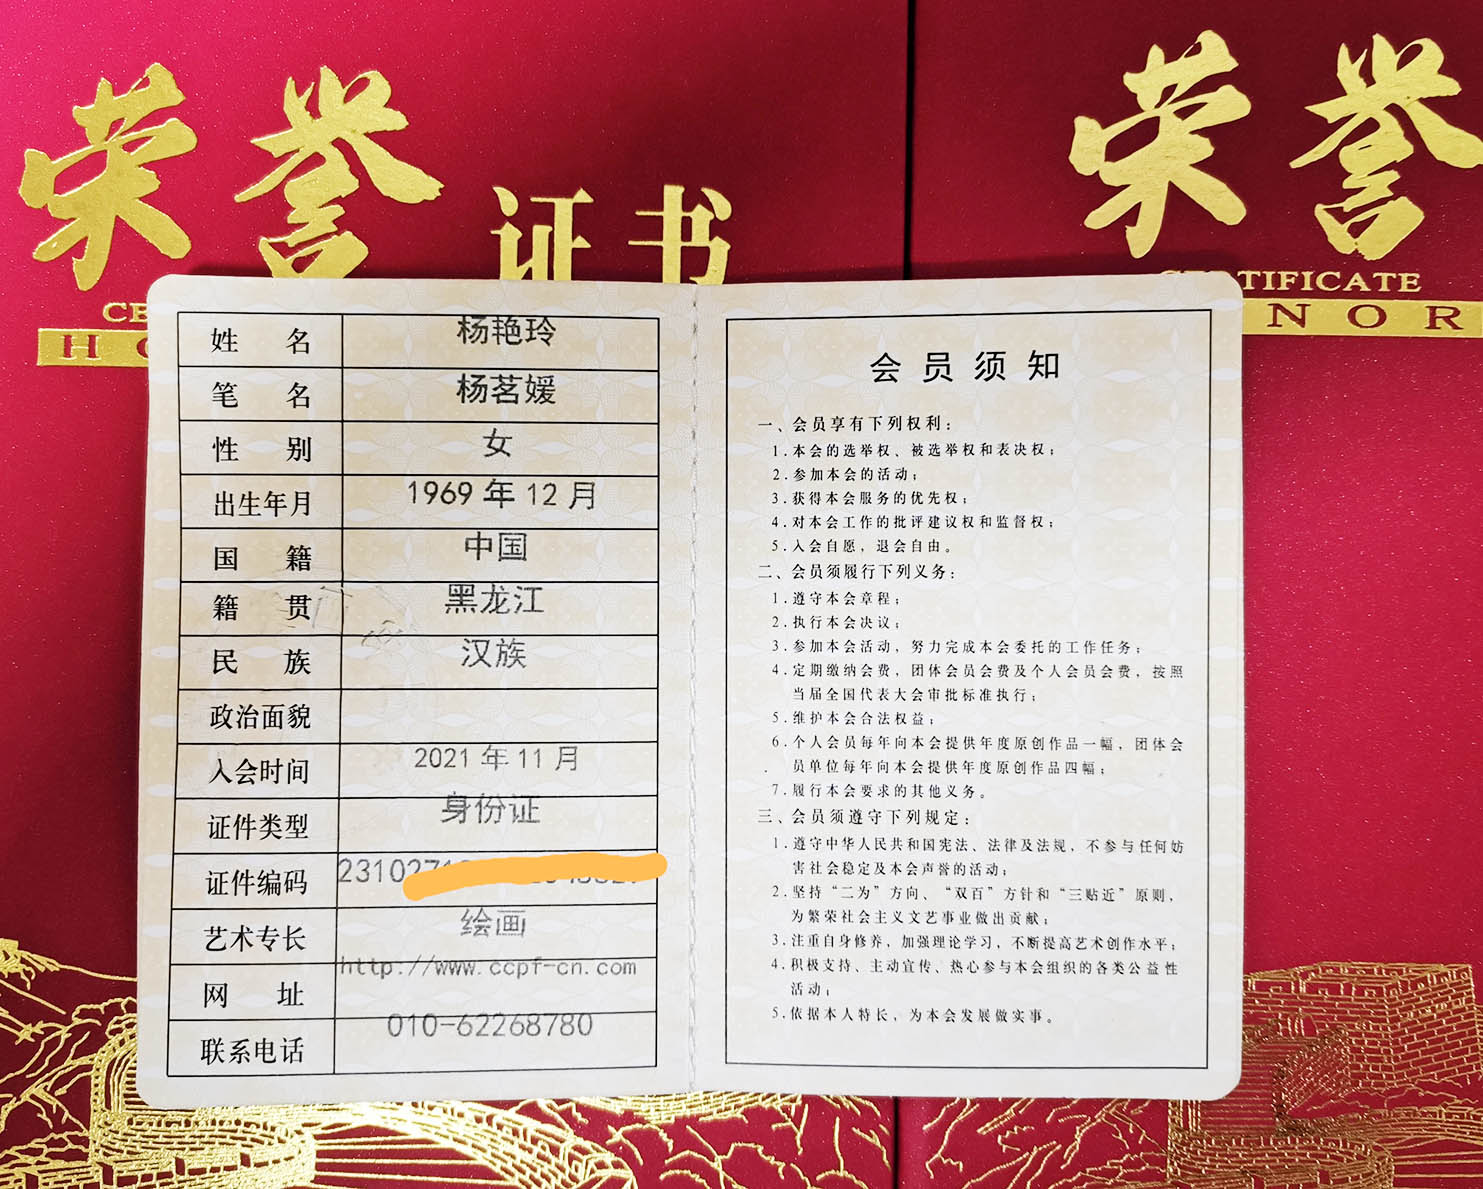 荣誉证书
CE
HO
荣誉
CERTIFICATE
NOR
姓名 杨艳玲
笔名 杨茗媛
性别 女
出生年月 1969年12月
国籍 中国
籍贯 黑龙江
民族 汉族
政治面貌
入会时间 2021年11月
证件类型 身份证
证件编码 231027
艺术专长 绘画
网址 http://www.ccpf-cn.com
联系电话 010-62268780
会员须知
一、会员享有下列权利：
1.本会的选举权、被选举权和表决权；
2.参加本会的活动；
3.获得本会服务的优先权；
4.对本会工作的批评建议权和监督权；
5.入会自愿，退会自由。
二、会员须履行下列义务：
1.遵守本会章程；
2.执行本会决议；
3.参加本会活动，努力完成本会委托的工作任务；
4.定期缴纳会费，团体会员会费及个人会员会费，按照
当届全国代表大会审批标准执行；
5.维护本会合法权益；
6.个人会员每年向本会提供年度原创作品一幅，团体会
员单位每年向本会提供年度原创作品四幅；
7.履行本会要求的其他义务。
三、会员须遵守下列规定：
1.遵守中华人民共和国宪法、法律及法规，不参与任何妨
害社会稳定及本会声誉的活动；
2.坚持“二为”方向、“双百”方针和“三贴近”原则，
为繁荣社会主义文艺事业做出贡献；
3.注重自身修养，加强理论学习，不断提高艺术创作水平；
4.积极支持、主动宣传、热心参与本会组织的各类公益性
活动；
5.依据本人特长，为本会发展做实事。